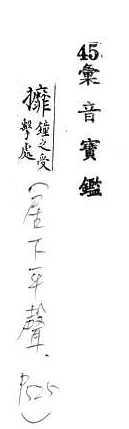 45彙音寶鑑
攠鐘之受
擊處
(居下平聲. P525)